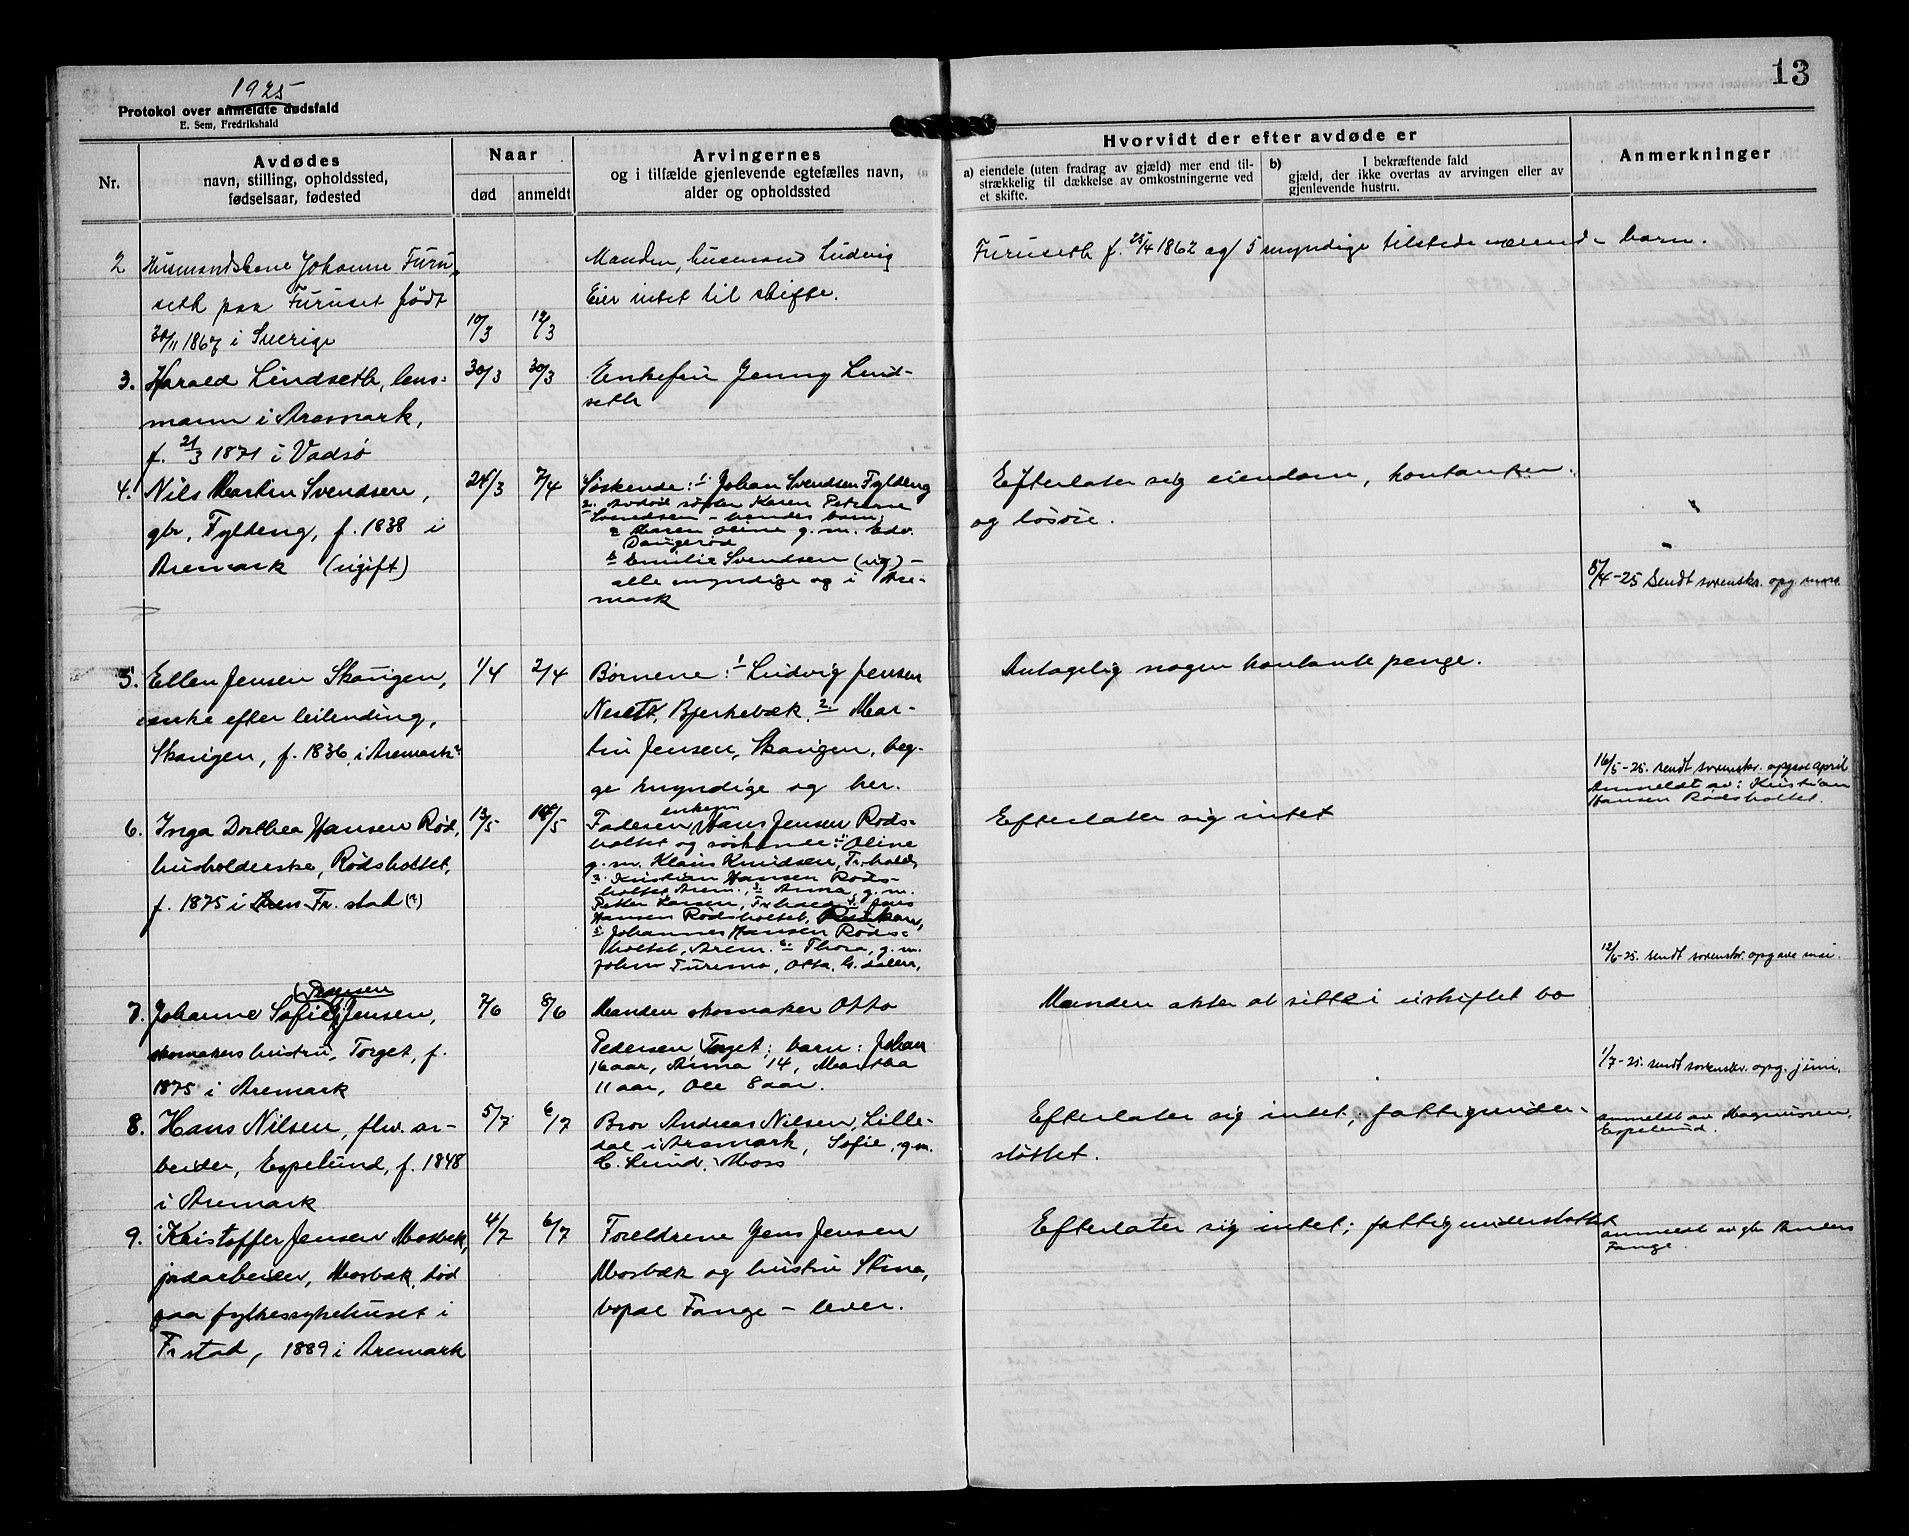 1925
13
Protokol over anmeldte dødsfald
E. Sem, Fredrikshald
Nr.
Avdødes
navn, stilling, opholdssted,
fødselsaar, fødested
Naar
død
anmeldt
Arvingernes
og i tilfælde gjenlevende egtefælles navn,
alder og opholdssted
Hvorvidt der efter avdøde er
a) eiendele (uten fradrag av gjæld) mer end til-
strækkelig til dækkelse av omkostningerne ved
et skifte.
b) I bekræftende fald
gjæld, der ikke overtas av arvingen eller av
gjenlevende hustru.
Anmerkninger
2 Husmandskone Johanne Furu-
seth paa Furuset født
30/11 1867 i Sverige
10/3
12/3
Manden, husmand Ludvig
Eier intet til skifte.
Furuseth f. 25/4 1862 og 5 myndige tilstedeværende barn.
3. Harald Lindseth, lens-
mann i Aremark,
f. 21/3 1871 i Vadsø
30/3
30/3
Enkefru Jenny Lind-
seth
4. Nils Martin Svendsen,
gbr, Fyldeng, f. 1838 i
Aremark (ugift)
24/3
7/4
Søskende: 1. Johan Svendsen Fyldeng
2. Avdød søster Karen Petrine
Svendsen - hendes barn,
a Maren Oline g. m. Edv.
Daugerød
b Emilie Svendsen (ug) -
alle myndige og i Are-
mark
Efterlater sig eiendom, kontanter
og løsøre.
8/4-25 Sendt sorenskr. opg. mars.
5. Ellen Jensen Skaugen,
enke efter leilending,
Skaugen, f. 1836 i Aremark
1/4
2/4
Børnene: 1 Ludvig Jensen
Neseth, Bjerkebæk, 2. Mar-
tin Jensen, Skaugen, beg-
ge myndige og her.
Antagelig nogen kontante penge.
16/5-25. sendt sorenskr. opgave april
Anmeldt av: Kristian
Hansen Rødsholtet.
6. Inga Dorthea Hansen Rød,
husholderske, Rødsholtet,
f. 1875 i Fr. stad (?)
13/5
18/5
enkem
Faderen Hans Jensen Røds-
holtet og søskende: 1. Oline
g. m. Klaus Knudsen, Fr. hald,
2. Kristian Hansen Røds-
holtet Arem., 3. Anna, g. m.
Petter Larsen, Fr. hald 4. Jens
Hansen Rødsholtet, Rjukan,
5. Johannes Hansen Røds-
holtet, Arem. 6. Thora, g. m.
Johan Furemo, Otta, G. dalen,
Efterlater sig intet
12/6-25. sendt sorenskr. opgave mai.
Hansen
7. Johanne Sofie Jensen,
skomakers hustru, Torget, f.
1875 i Aremark
7/6
8/6
Manden skomaker Otto
Pedersen Torget; barn: Johan
16 aar, Anna 14, Martha
11 aar, Ole 8 aar.
Manden akter at sitte i uskiftet bo
1/7-25. sendt sorenskr. opg. juni.
8. Hans Nilsen, fhv. ar-
beider, Espelund, f. 1848
i Aremark
5/7
6/7
Bror Andreas Nilsen, Lille-
dal i Aremark, Sofie, g.m.
C. Lund, Moss
Efterlater sig intet; fattigunder-
støttet.
Anmeldt av Magnussen,
Espelund.
9. Kristoffer Jensen Mosbæk,
jordarbeider, Mosbæk, død
paa fylkessykehuset i
Fr stad, 1889 i Aremark
4/7
6/7
Foreldrene Jens Jensen
Mosbæk og hustru Stina,
bopæl Fange - lever.
Efterlater sig intet; fattigunderstøttet
anmeldt av gbr Anders
Fange.